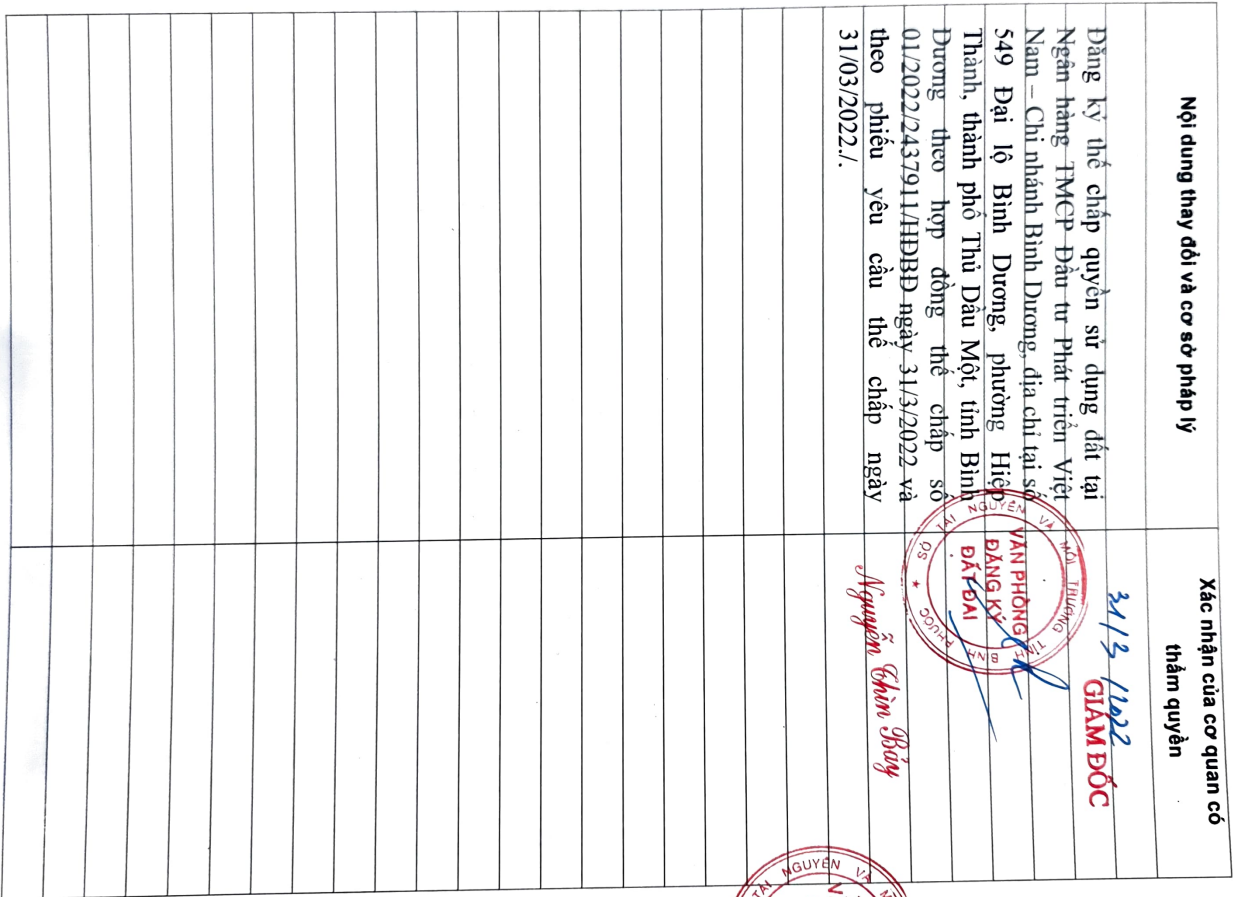 Nội dung thay đổi và cơ sở pháp lý
Xác nhận của cơ quan có
thẩm quyền
Đăng ký thế chấp quyền sử dụng đất tại
Ngân hàng TMCP Đầu tư Phát triển Việt
Nam – Chi nhánh Bình Dương, địa chỉ tại số
549 Đại lộ Bình Dương, phường Hiệp
Thành, thành phố Thủ Dầu Một, tỉnh Bình
Dương theo hợp đồng thế chấp số
01/2022/2437911/HĐBĐ ngày 31/3/2022 và
theo phiếu yêu cầu thế chấp ngày
31/03/2022./.
31/3/2022
GIÁM ĐỐC
SỞ TÀI NGUYÊN VÀ MÔI TRƯỜNG TỈNH BÌNH PHƯỚC ★
VĂN PHÒNG
ĐĂNG KÝ
ĐẤT ĐAI
Nguyễn Thìn Bảy
TÀI NGUYÊN VÀ